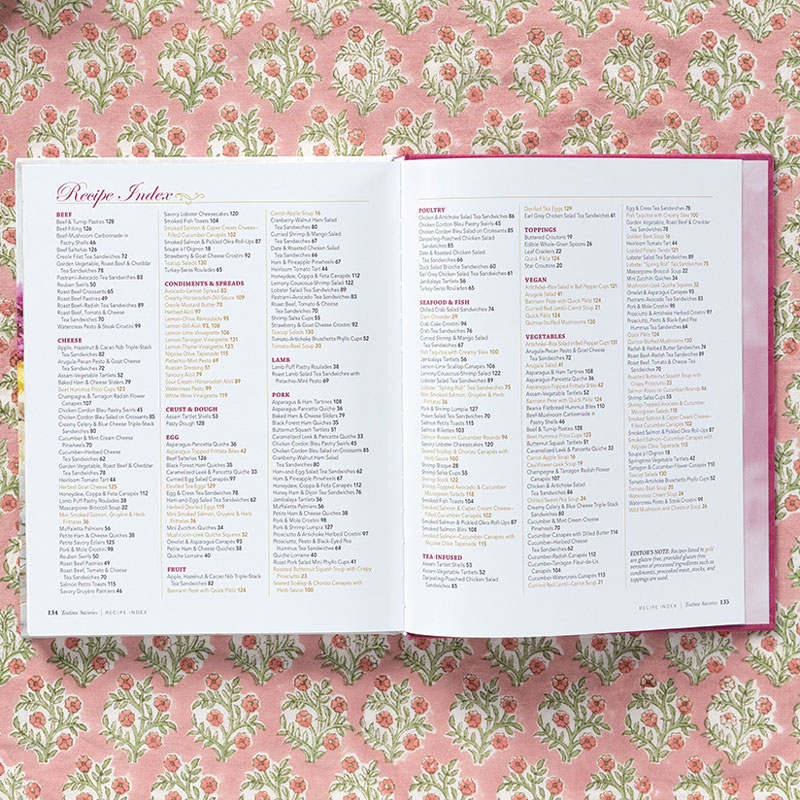 Recipe Index
BEEF
Beef & Turnip Pasties 128
Beef Filling 126
Beef-Mushroom Carbonnade in
Pastry Shells 46
Beef Salteñas 126
Creole Filet Tea Sandwiches 72
Garden Vegetable, Roast Beef & Cheddar
Tea Sandwiches 78
Pastrami-Avocado Tea Sandwiches 83
Reuben Swirls 50
Roast Beef Croissants 65
Roast Beef Swirls 49
Roast Beef-Radish Tea Sandwiches 89
Roast Beef, Tomato & Cheese
Tea Sandwiches 70
Watercress Pesto & Steak Crostini 99
CHEESE
Apple, Hazelnut & Cacao Nib Triple-Stack
Tea Sandwiches 82
Arugula-Pecan Pesto & Goat Cheese
Tea Sandwiches 72
Assam-Vegetable Tartlets 52
Baked Ham & Cheese Sliders 79
Beet Hummus Price Cups 123
Champagne & Tarragon Radish Flower
Canapés 107
Chicken Cordon Bleu Pastry Swirls 45
Chicken Cordon Bleu Salad on Croissants 85
Creamy Celery & Blue Cheese Triple-Stack
Sandwiches 80
Cucumber & Mint Cream Cheese
Pinwheels 70
Cucumber-Herbed Cheese
Tea Sandwiches 62
Garden Vegetable, Roast Beef & Cheddar
Tea Sandwiches 78
Heirloom Tomato Tart 44
Herbed Goat Cheese 125
Honeydew, Coppa & Feta Canapés 112
Lamb Puff Pastry Roulades 38
Mascarpone-Boursin Soup 22
Mini Smoked Salmon, Gruyère & Herb
Frittatas 36
Muffaletta Palmiers 56
Petite Ham & Cheese Quiches 38
Petite Savory Éclairs 125
Pork & Mole Crostini 98
Reuben Swirls 50
Roast Beef Swirls 49
Roast Beef, Tomato & Cheese
Tea Sandwiches 70
Salmon Petits Toasts 115
Savory Gruyère Palmiers 46
Savory Lobster Cheesecakes 120
Smoked Fish Toasts 104
Smoked Salmon & Caper Cream Cheese–
Filled Cucumber Canapés 102
Smoked Salmon & Pickled Okra Roll-Ups 87
Soupe à l'Oignon 18
Strawberry & Goat Cheese Crostini 92
Teacup Salads 130
Turkey-Swiss Roulades 65
CONDIMENTS & SPREADS
Avocado-Lemon Spread 102
Creamy Horseradish-Dill Sauce 109
Creole Mustard Butter 72
Herbed Aïoli 97
Lemon-Chive Remoulade 95
Lemon-Dill Aïoli 92, 108
Lemon-Dijon Vinaigrette 106
Lemon-Tarragon Vinaigrette 131
Lemon-Thyme Vinaigrette 123
Niçoise Olive Tapenade 115
Pistachio-Mint Pesto 69
Russian Dressing 51
Savory Aïoli 79
Sour Cream-Horseradish Aïoli 89
Watercress Pesto 99
White Wine Vinaigrette 69
CRUST & DOUGH
Assam Tartlet Shells 53
Pasty Dough 128
EGG
Asparagus-Pancetta Quiche 36
Asparagus-Topped Frittata Bites 42
Beef Salteñas 126
Black Forest Ham Quiches 35
Caramelized Leek & Pancetta Quiche 33
Curried Egg Salad Canapés 97
Deviled Tea Eggs 129
Egg & Cress Tea Sandwiches 78
Ham-and-Egg Salad Tea Sandwiches 62
Herbed Deviled Eggs 119
Mini Smoked Salmon, Gruyère & Herb
Frittatas 36
Mini Zucchini Quiches 34
Mushroom-Leek Quiche Squares 32
Omelet & Asparagus Canapés 93
Petite Ham & Cheese Quiches 38
Quiche Lorraine 40
FRUIT
Apple, Hazelnut & Cacao Nib Triple-Stack
Tea Sandwiches 82
Bannane Peer with Quick Pickle 124
Carrot-Apple Soup 16
Cranberry-Walnut Ham Salad
Tea Sandwiches 80
Curried Shrimp & Mango Salad
Tea Sandwiches 67
Date & Roasted Chicken Salad
Tea Sandwiches 66
Ham & Pineapple Pinwheels 67
Heirloom Tomato Tart 44
Honeydew, Coppa & Feta Canapés 112
Lemony Couscous-Shrimp Salad 122
Lobster Salad Tea Sandwiches 89
Pastrami-Avocado Tea Sandwiches 83
Roast Beef, Tomato & Cheese
Tea Sandwiches 70
Shrimp Salsa Cups 55
Strawberry & Goat Cheese Crostini 92
Teacup Salads 130
Tomato-Artichoke Bruschetta Phyllo Cups 52
Tomato-Beef Soup 20
LAMB
Lamb Puff Pastry Roulades 38
Roast Lamb Salad Tea Sandwiches with
Pistachio-Mint Pesto 69
PORK
Asparagus & Ham Tartines 108
Asparagus-Pancetta Quiche 36
Baked Ham & Cheese Sliders 79
Black Forest Ham Quiches 35
Butternut Squash Tartlets 51
Caramelized Leek & Pancetta Quiche 33
Chicken Cordon Bleu Pastry Swirls 45
Chicken Cordon Bleu Salad on Croissants 85
Cranberry-Walnut Ham Salad
Tea Sandwiches 80
Ham-and-Egg Salad Tea Sandwiches 62
Ham & Pineapple Pinwheels 67
Honeydew, Coppa & Feta Canapés 112
Honey Ham & Dijon Tea Sandwiches 76
Jambalaya Tartlets 56
Muffaletta Palmiers 56
Petite Ham & Cheese Quiches 38
Pork & Mole Crostini 98
Pork & Shrimp Lumpia 127
Prosciutto & Artichoke Herbed Crostini 97
Prosciutto, Pesto & Black-Eyed Pea
Hummus Tea Sandwiches 64
Quiche Lorraine 40
Roast Pork Salad Mini Phyllo Cups 41
Roasted Butternut Squash Soup with Crispy
Prosciutto 23
Seared Scallop & Chorizo Canapés with
Herb Sauce 100
134 Teatime Savories | RECIPE INDEX
POULTRY
Chicken & Artichoke Salad Tea Sandwiches 86
Chicken Cordon Bleu Pastry Swirls 45
Chicken Cordon Bleu Salad on Croissants 85
Darjeeling-Poached Chicken Salad
Sandwiches 85
Date & Roasted Chicken Salad
Tea Sandwiches 66
Duck Salad Brioche Sandwiches 60
Earl Grey Chicken Salad Tea Sandwiches 61
Jambalaya Tartlets 56
Turkey Swiss Roulades 65
SEAFOOD & FISH
Chilled Crab Salad Sandwiches 74
Clam Chowder 29
Crab Cake Crostini 94
Crab Tea Sandwiches 76
Curried Shrimp & Mango Salad
Tea Sandwiches 67
Fish Taquitos with Creamy Slaw 100
Jambalaya Tartlets 56
Lemon-Lime Scallop Canapés 106
Lemony Couscous-Shrimp Salad 122
Lobster Salad Tea Sandwiches 89
Lobster "Spring Roll" Tea Sandwiches 75
Mini Smoked Salmon, Gruyère & Herb
Frittatas 36
Pork & Shrimp Lumpia 127
Prawn Salad Tea Sandwiches 70
Salmon Petits Toasts 115
Salmon Rillettes 103
Salmon Roses on Cucumber Rounds 94
Savory Lobster Cheesecakes 120
Seared Scallop & Chorizo Canapés
with Herb Sauce 100
Shrimp Bisque 28
Shrimp Salsa Cups 55
Shrimp Stock 122
Shrimp-Topped Avocado & Cucumber
Microgreen Salads 118
Smoked Fish Toasts 104
Smoked Salmon & Caper Cream Cheese–
Filled Cucumber Canapés 102
Smoked Salmon & Pickled Okra Roll-Ups 87
Smoked Salmon Blini 108
Smoked Salmon–Cucumber Canapés with
Niçoise Olive Tapenade 115
TEA-INFUSED
Assam Tartlet Shells 53
Assam-Vegetable Tartlets 52
Darjeeling-Poached Chicken Salad
Sandwiches 85
Deviled Tea Eggs 129
Earl Grey Chicken Salad Tea Sandwiches 61
TOPPINGS
Buttered Croutons 19
Edible Whole-Grain Spoons 26
Leaf Crackers 22
Quick Pickle 124
Star Croutons 20
VEGAN
Artichoke-Rice Salad in Bell Pepper Cups 131
Arugula Salad 41
Bannane Peer with Quick Pickle 124
Curried Red Lentil–Carrot Soup 21
Quick Pickle 124
Quince-Stuffed Mushrooms 130
VEGETABLES
Artichoke-Rice Salad in Bell Pepper Cups 131
Arugula-Pecan Pesto & Goat Cheese
Tea Sandwiches 72
Arugula Salad 41
Asparagus & Ham Tartines 108
Asparagus-Pancetta Quiche 36
Asparagus-Topped Frittata Bites 42
Assam-Vegetable Tartlets 52
Bannane Peer with Quick Pickle 124
Beef-Mushroom Carbonnade in
Pastry Shells 46
Beef & Turnip Pasties 128
Beet Hummus Price Cups 123
Butternut Squash Tartlets 51
Caramelized Leek & Pancetta Quiche 33
Carrot-Apple Soup 16
Cauliflower Leek Soup 19
Champagne & Tarragon Radish Flower
Canapés 107
Chicken & Artichoke Salad
Tea Sandwiches 86
Creamy Celery & Blue Cheese Triple-Stack
Sandwiches 80
Cucumber & Mint Cream Cheese
Pinwheels 70
Cucumber Canapés with Dilled Butter 114
Cucumber-Herbed Cheese
Tea Sandwiches 62
Cucumber-Radish Canapés 112
Cucumber-Tarragon Fleur-de-Lis
Canapés 104
Cucumber-Watercress Canapés 113
Curried Red Lentil–Carrot Soup 21
Egg & Cress Tea Sandwiches 78
Fish Taquitos with Creamy Slaw 100
Garden Vegetable, Roast Beef & Cheddar
Tea Sandwiches 78
Heirloom Tomato Tart 44
Lobster Salad Tea Sandwiches 89
Lobster "Spring Roll" Tea Sandwiches 75
Mascarpone-Broccoli Soup 22
Mini Zucchini Quiches 34
Mushroom-Leek Quiche Squares 32
Omelet & Asparagus Canapés 93
Pastrami-Avocado Tea Sandwiches 83
Pork & Mole Crostini 98
Prosciutto & Artichoke Herbed Crostini 97
Prosciutto, Pesto & Black-Eyed Pea
Hummus Tea Sandwiches 64
Quick Pickle 124
Quince-Stuffed Mushrooms 130
Radish & Herbed Butter Sandwiches 74
Roast Beef-Radish Tea Sandwiches 89
Roast Beef, Tomato & Cheese
Tea Sandwiches 70
Roasted Butternut Squash Soup with
Crispy Prosciutto 23
Salmon Roses on Cucumber Rounds 94
Shrimp Salsa Cups 55
Shrimp-Topped Avocado & Cucumber
Microgreen Salads 118
Smoked Salmon & Caper Cream Cheese–
Filled Cucumber Canapés 102
Smoked Salmon & Pickled Okra Roll-Ups 87
Smoked Salmon–Cucumber Canapés with
Niçoise Olive Tapenade 115
Soupe à l'Oignon 18
Springtime Vegetable Tartlets 42
Tarragon & Cucumber Flower Canapés 110
Teacup Salads 130
Tomato-Artichoke Bruschetta Phyllo Cups 52
Tomato-Beef Soup 20
Watercress Cream Soup 24
Watercress Pesto & Steak Crostini 99
Wild Mushroom and Chestnut Soup 26
EDITOR'S NOTE: Recipes listed in gold
are gluten-free, provided gluten-free
versions of processed ingredients such as
condiments, precooked meat, stocks, and
toppings are used.
RECIPE INDEX | Teatime Savories 135